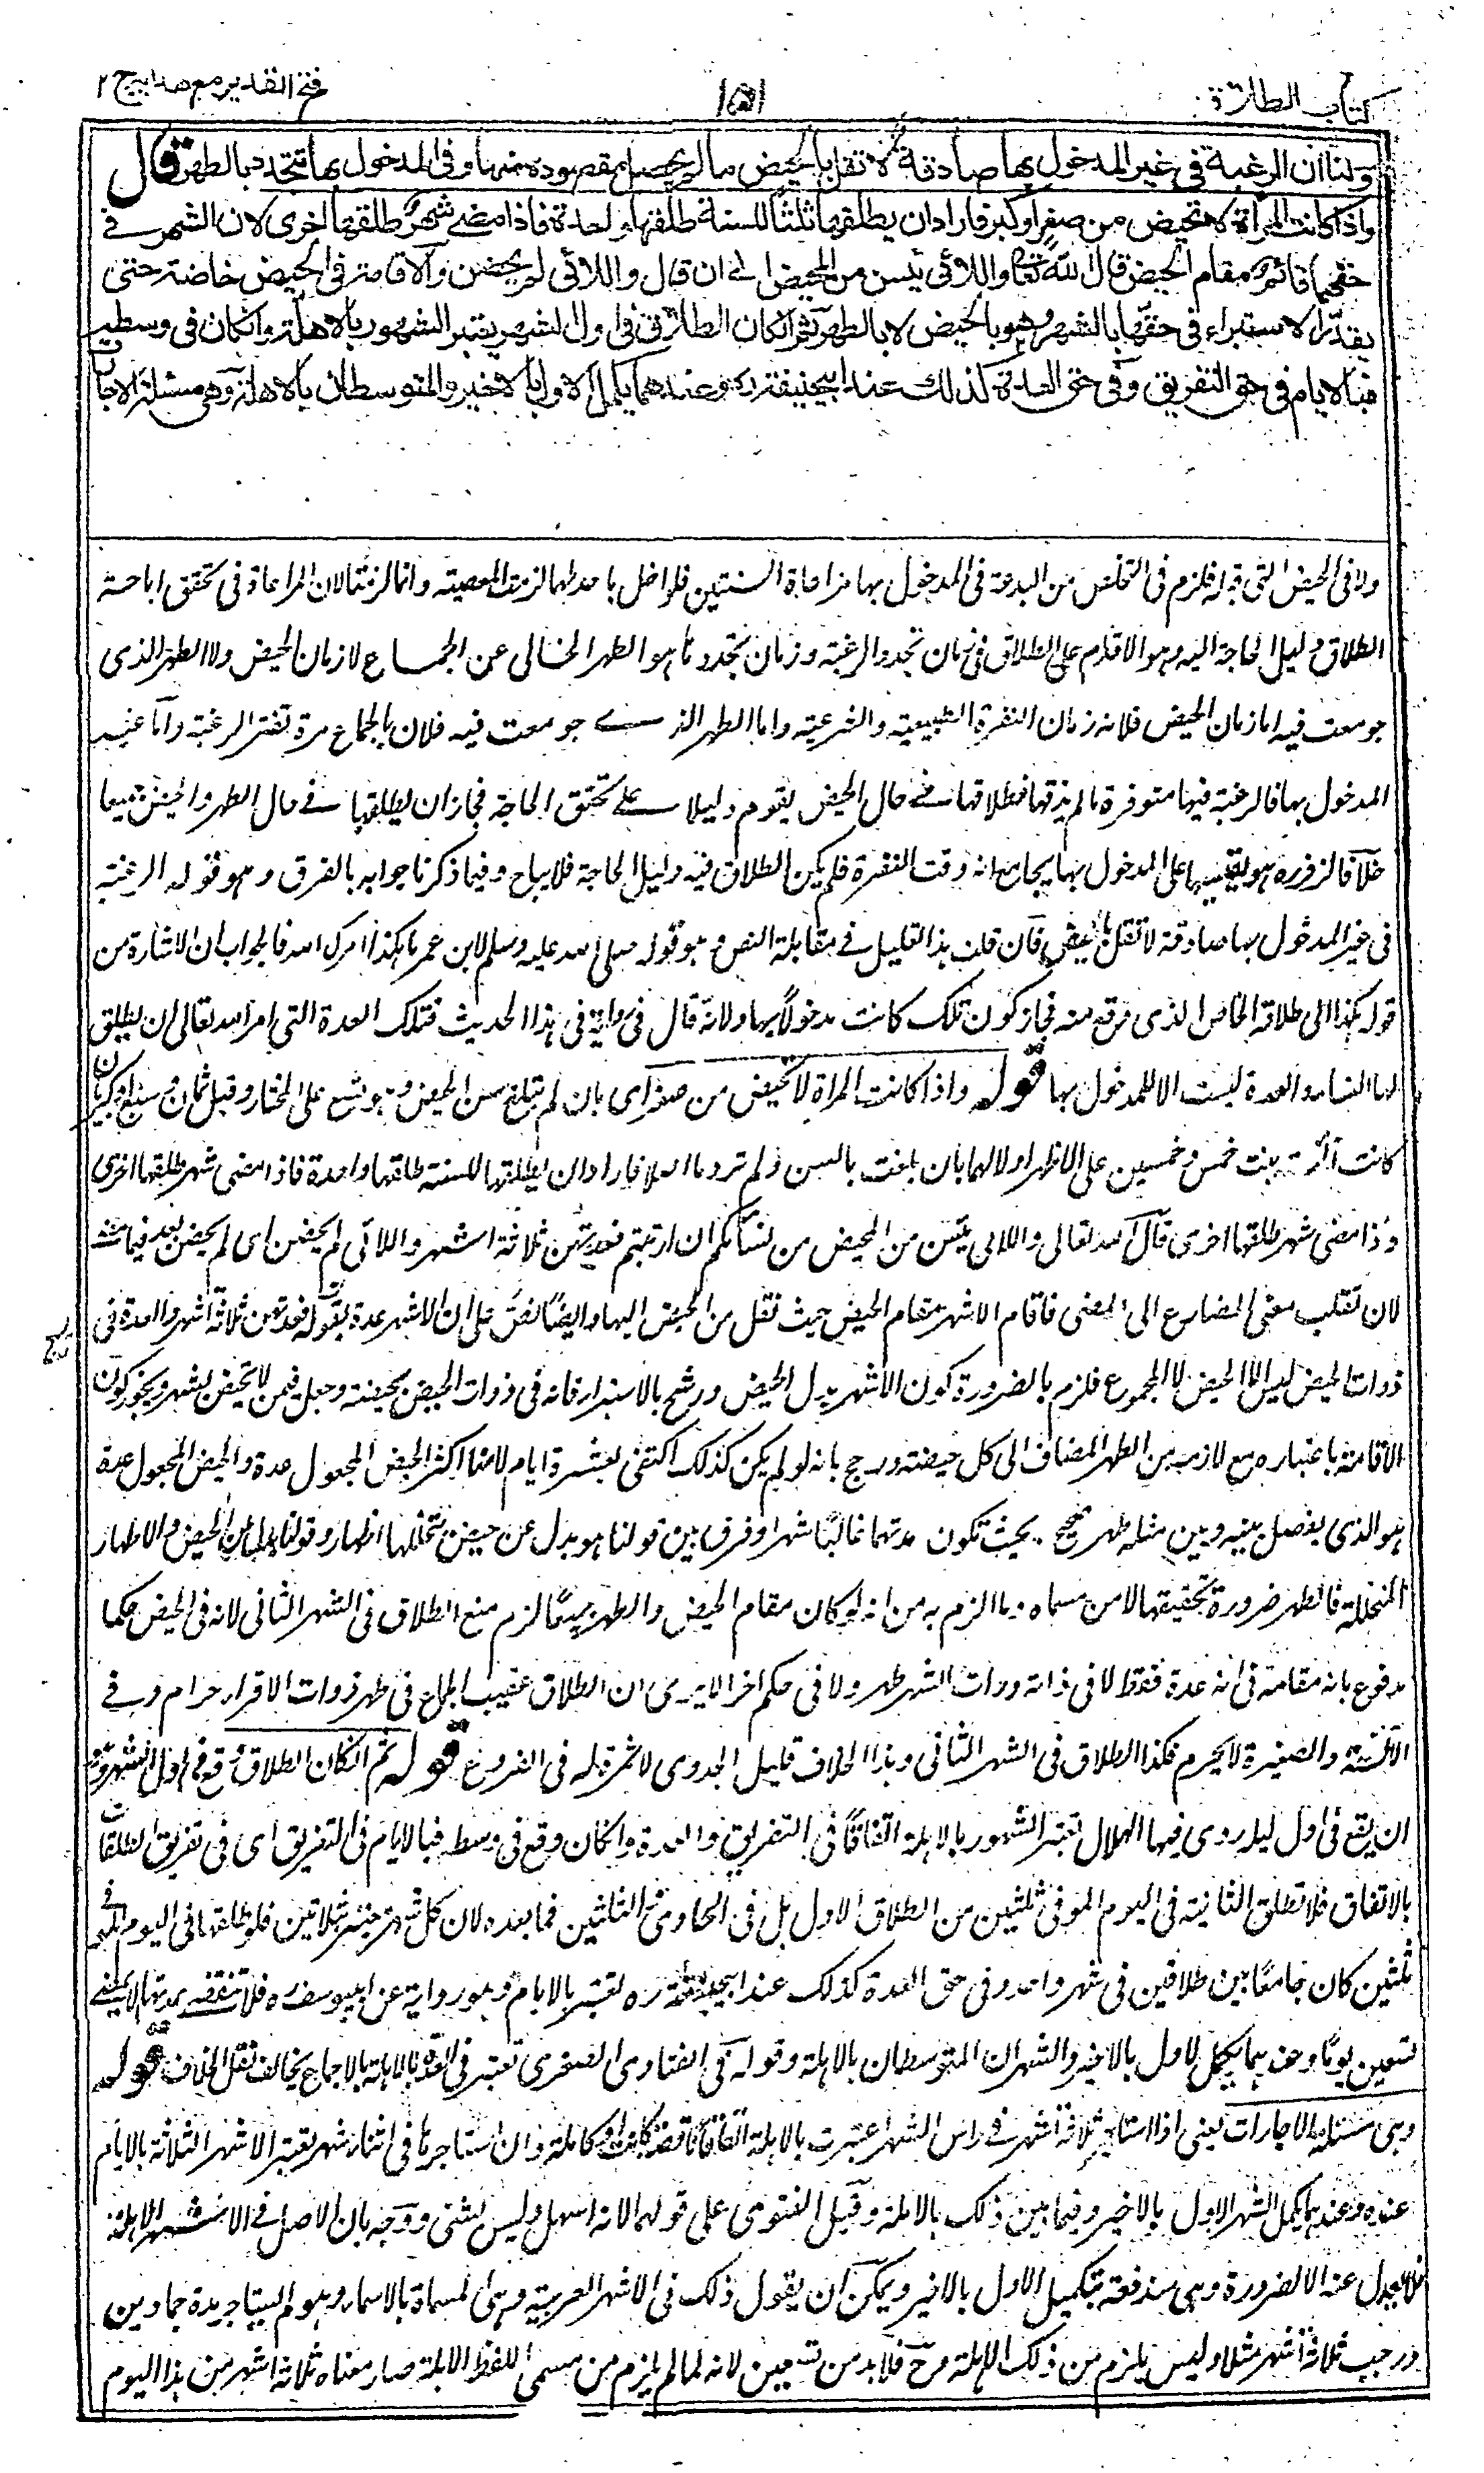 كتاب الطلاق
١٥١
فتح القدير مع هدايه ج ٢
ولنا ان الرغبة فى غير المدخول بها صادقة لا تقل بالحيض ما لم يحصل مقصوده منها وفى المدخول بها تتجدد بالطهر قال
واذا كانت المرأة لا تحيض من صغر او كبر فاراد ان يطلقها ثلثا للسنة طلقها واحدة فاذا مضى شهر طلقها اخرى لان الشهر فى
حقها قائم مقام الحيض قال الله تعا واللائى يئسن من المحيض الى ان قال واللائى لم يحضن والاقامة فى الحيض خاصة حتى
يقدر الاستبراء فى حقها بالشهر وهو بالحيض لا بالطهر ثم ان كان الطلاق فى اول الشهر يعتبر الشهور بالاهلة وان كان فى وسطه
فبالايام فى حق التفريق وفى حق العدة كذلك عند ابى حنيفة ره وعندهما يكمل الاول بالاخير والمتوسطان بالاهلة وهى مسئلة الاجارات
ولا فى الحيض التى قبله فلزم فى التخلص من البدعة فى المدخول بها مراعاة السنتين فلو اخل باحدلهما لزمت المعصية وانما لزمتا لان المراعاة فى تحقق اباحة
الطلاق دليل الحاجة اليه وهو الاقدام على الطلاق فى زمان تجدد الرغبة وزمان تجددها هو الطهر الخالى عن الجماع لا زمان الحيض ولا الطهر الذى
جومعت فيه اما زمان الحيض فلانه زمان النفرة الطبيعية والشرعية واما الطهر الذى جومعت فيه فلان بالجماع مرة تفتر الرغبة واما غير
المدخول بها فالرغبة فيها متوفرة ما لم يذقها فطلاقها فى حال الحيض يقوم دليلا على تحقق الحاجة فجاز ان يطلقها فى حال الطهر والحيض جميعا
خلافا لزفر ره هو يقيسها على المدخول بها بجامع انه وقت النفرة فلم يكن الطلاق فيه دليل الحاجة فلا يباح وفيما ذكرنا جوابه بالفرق وهو قوله الرغبة
فى غير المدخول بها صادقة لا تقل بالحيض فان قلت هذا التعليل فى مقابلة النص وهو قوله صلى الله عليه وسلم لابن عمر ما هكذا امرك الله فالجواب ان الاشارة من
قوله هكذا الى طلاقه الخاص الذى وقع منه فجاز كون تلك كانت مدخولا بها ولانه قال فى رواية فى هذا الحديث فتلك العدة التى امر الله تعالى ان يطلق
لها النساء والعدة ليست الا للمدخول بها قوله واذا كانت المرأة لا تحيض من صغر اى بان لم تبلغ سن الحيض وهو تسع على المختار وقيل ثمان وسبع او كبر بان
كانت آئسة بنت خمس وخمسين على الاظهر او لا لهما بان بلغت بالسن ولم تر دما اصلا فاراد ان يطلقها للسنة طلقها واحدة فاذا مضى شهر طلقها اخرى
واذا مضى شهر طلقها اخرى قال الله تعالى واللائى يئسن من المحيض من نسائكم ان ارتبتم فعدتهن ثلاثة اشهر واللائى لم يحضن اى لم يحضن بعد فيما مضى
لان لم تقلب معنى المضارع الى المضى فاقام الاشهر مقام الحيض حيث نقل من الحيض اليها وايضا نص على ان الاشهر عدة بقوله فعدتهن ثلاثة اشهر والعدة فى
ذوات الحيض ليس الا الحيض لا المجموع فلزم بالضرورة كون الاشهر بدل الحيض ورشح بالاستبراء فانه فى ذوات الحيض بحيضة وجعل فيمن لا تحيض بشهر ويجوز كون
الاقامة باعتباره مع لازمه من الطهر المضاف الى كل حيضة ورجح بانه لو لم يكن كذلك اكتفى بعشرة ايام لانها اكثر الحيض المجعول عدة والحيض المجعول عدة
هو الذى يفصل بينه وبين مثله طهر صحيح بحيث تكون مدتهما غالبا شهرا وفرق بين قولنا هو بدل عن حيض يتخللها اطهار وقولنا بدل عن الحيض والاطهار
المتخللة فالطهر ضرورة تحقيقها لا من مسماه وما الزم به من انه لو كان مقام الحيض والطهر جميعا لزم منع الطلاق فى الشهر الثانى لانه فى الحيض حكما
مدفوع بانه مقامه فى انه عدة فقط لا فى ذاته وذات الشهر طهر ولا فى حكم اخر الا يرى ان الطلاق عقيب الجماع فى طهر ذوات الاقراء حرام وفى
الآئسة والصغيرة لا يحرم فكذا الطلاق فى الشهر الثانى وهذا الخلاف قليل الجدوى لا ثمرة له فى الفروع قوله ثم ان كان الطلاق وقع فى اول الشهر وهو
ان يقع فى اول ليلة روى فيها الهلال تعتبر الشهور بالاهلة اتفاقا فى التفريق والعدة وان كان وقع فى وسطه فبالايام فى التفريق اى فى تفريق الطلقات
بالاتفاق فلا تطلق الثانية فى اليوم الموفى ثلثين من الطلاق الاول بل فى الحادى والثلثين فما بعده لان كل شهر معتبر بثلاثين فلو طلقها فى اليوم الموفى
ثلثين كان جامعا بين طلاقين فى شهر واحد وفى حق العدة كذلك عند ابيحنيفة ره تعتبر بالايام وهو رواية عن ابيوسف ره فلا تنقضى عدتها الا بمضى
تسعين يوما وعندهما يكمل الاول بالاخير والشهران المتوسطان بالاهلة وقوله فى الفتاوى الصغرى تعتبر فى العدة بالاهلة بالاجماع يخالف نقل الخلاف قوله
وهى مسئلة الاجارات يعنى اذا استأجر ثلاثة اشهر فى راس الشهر اعتبرت بالاهلة اتفاقا ناقصة كانت او كاملة وان استاجرها فى اثناء شهر يعتبر الاشهر الثلاثة بالايام
عنده وعندهما يكمل الشهر الاول بالاخير وفيما بين ذلك بالاهلة وقيل الفتوى على قولهما لانه اسهل وليس بشئ ووجه بان الاصل فى الاشهر الاهلة
فلا يعدل عنه الا لضرورة وهى مندفعة بتكميل الاول بالاخير ويمكن ان يقول ذلك فى الاشهر العربية وهى المسماة بالاسماء وهو لم يستاجر مدة جمادين
ورجب ثلاثة اشهر مثلا وليس يلزم من ذلك الاهلة وح فلا بد من تسعين لانه لما لم يلزم من مسمى اللفظ الاهلة صار معناه ثلاثة اشهر من هذا اليوم